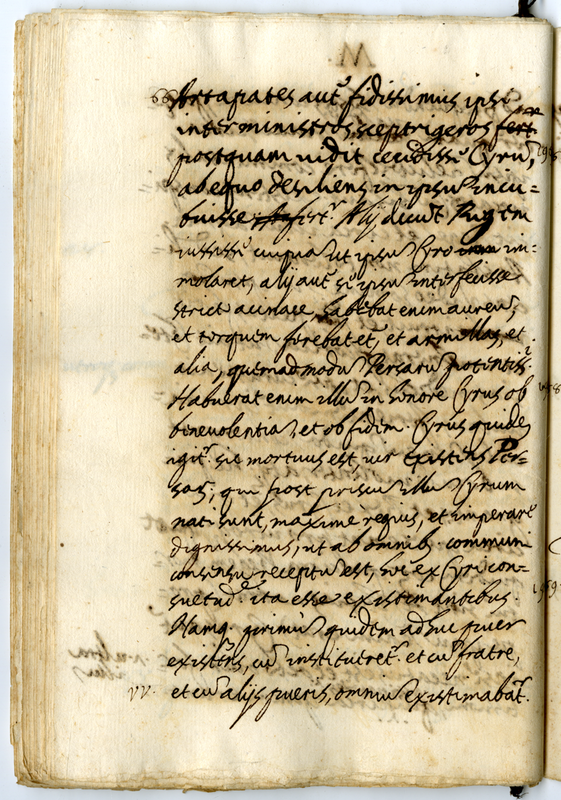 M.
66 Artapates aut̄ fidissimus ipsi
inter ministros sceptrigeros fert.
postquam uidit cecidissē Cyrū,
ab equo desiliens in ipsū incu=
buisse fert.ʳ Alij dicūt Regem
iussissē cuiquā ut ipsū Cyro im=
molaret, alij aut̄ sē ipsū interfecisse
strict acinace, habebat enim aureū,
et torquem ferebat et, et armillas, et
alia, quemadmodū Persarū potentiss.
Habuerat enim illū in honore Cyrus ob
beneuolentiā, et ob fidem. Cyrus quidē
igit.ʳ sic mortuus est, uir existens Per=
sas, qui post priscū illū Cyrum
nati sunt, maximè regius, et imperare
dignissimus, ut ab omnib. communi
consensu receptū est, hoc ex Cyri con=
suetud. ita esse existimantibus.
Namq. primū quidem adhuc puer
existēs, cū institueret.ʳ et cū fratre,
VV. et cū alijs pueris, omniū existimabat.ʳ